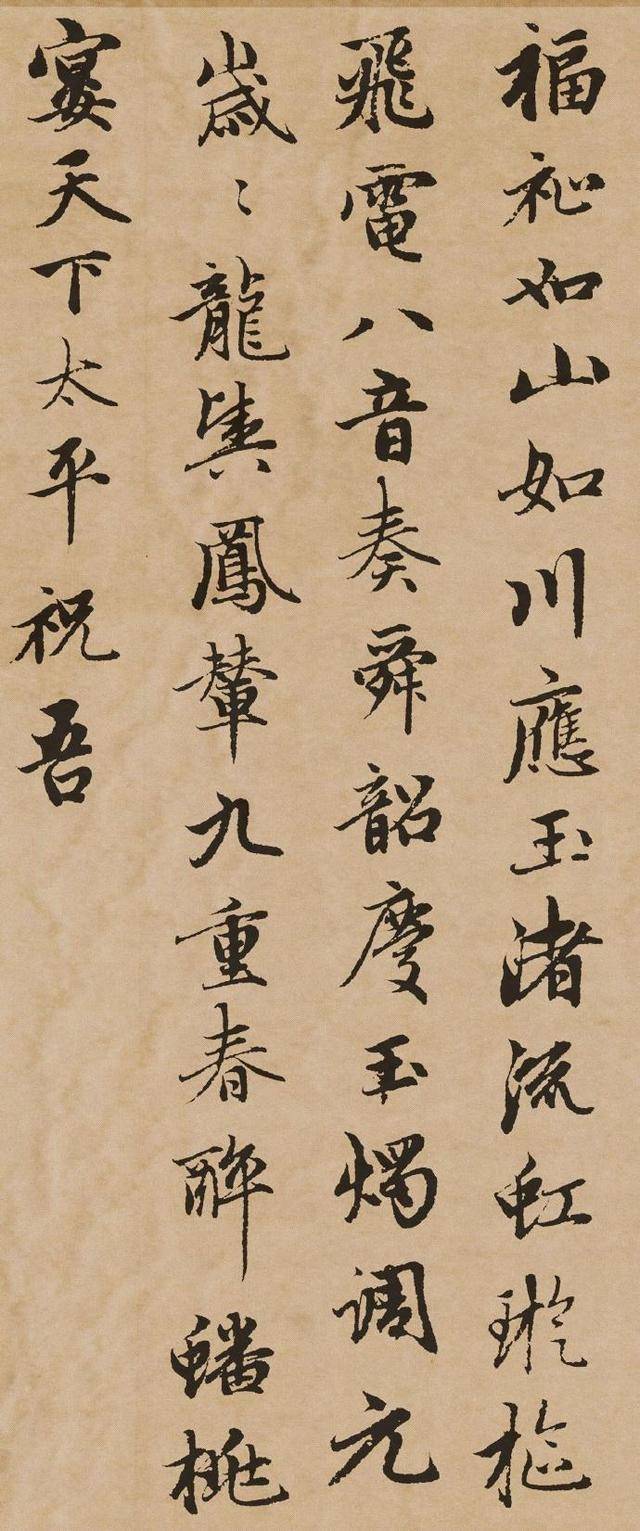 福祉如山如川應玉渚流虹璇樞
飛電八音奏舜韶慶玉燭調元
歲〻龍輿鳳輦九重春醉蟠桃
宴天下太平祝吾